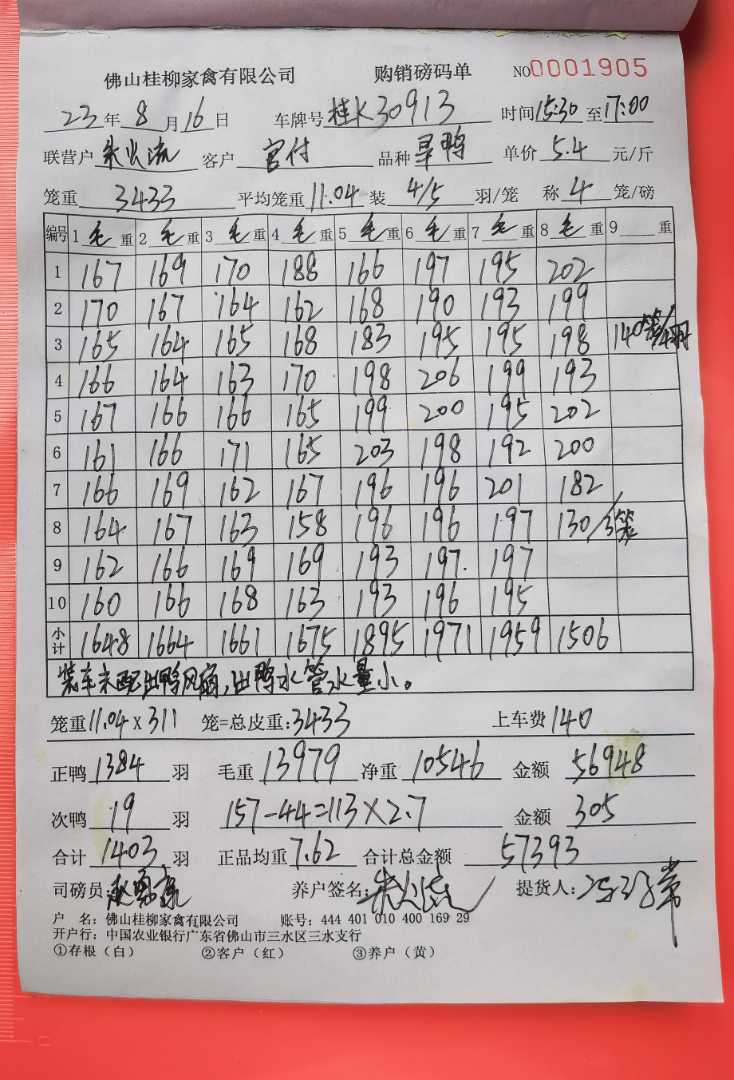 佛山桂柳家禽有限公司 购销磅码单 NO0001905
23年8月16日 车牌号桂K30913 时间15:30至17:00
联营户 朱火流 客户 宫付 品种 旱鸭 单价 5.4 元/斤
笼重 3433 平均笼重11.04 装 4/5 羽/笼 称 4 笼/磅
编号 1毛重 2毛重 3毛重 4毛重 5毛重 6毛重 7毛重 8毛重 9 重
1 167 169 170 188 166 197 195 202
2 170 167 164 162 168 190 193 199
3 165 164 165 168 183 195 195 198 140笼/4羽
4 166 164 163 170 198 206 199 193
5 167 166 166 165 199 200 195 202
6 161 166 171 165 203 198 192 200
7 166 169 162 167 196 196 201 182
8 164 167 163 158 196 196 197 130/3笼
9 162 166 169 169 193 197. 197
10 160 166 168 163 193 196 195
小计 1648 1664 1661 1675 1895 1971 1959 1506
装车未配出鸭风扇,出鸭水管水量小。
笼重11.04×311 笼=总皮重:3433 上车费140
正鸭1384羽 毛重13979 净重10546 金额 56948
次鸭 19 羽 157-44=113×2.7 金额 305
合计1403.羽 正品均重7.62 合计总金额 57393
司磅员: 养户签名: 提货人:
户 名:佛山桂柳家禽有限公司 账号:444 401 010 400 169 29
开户行:中国农业银行广东省佛山市三水区三水支行
①存根(白) ②客户(红) ③养户(黄)